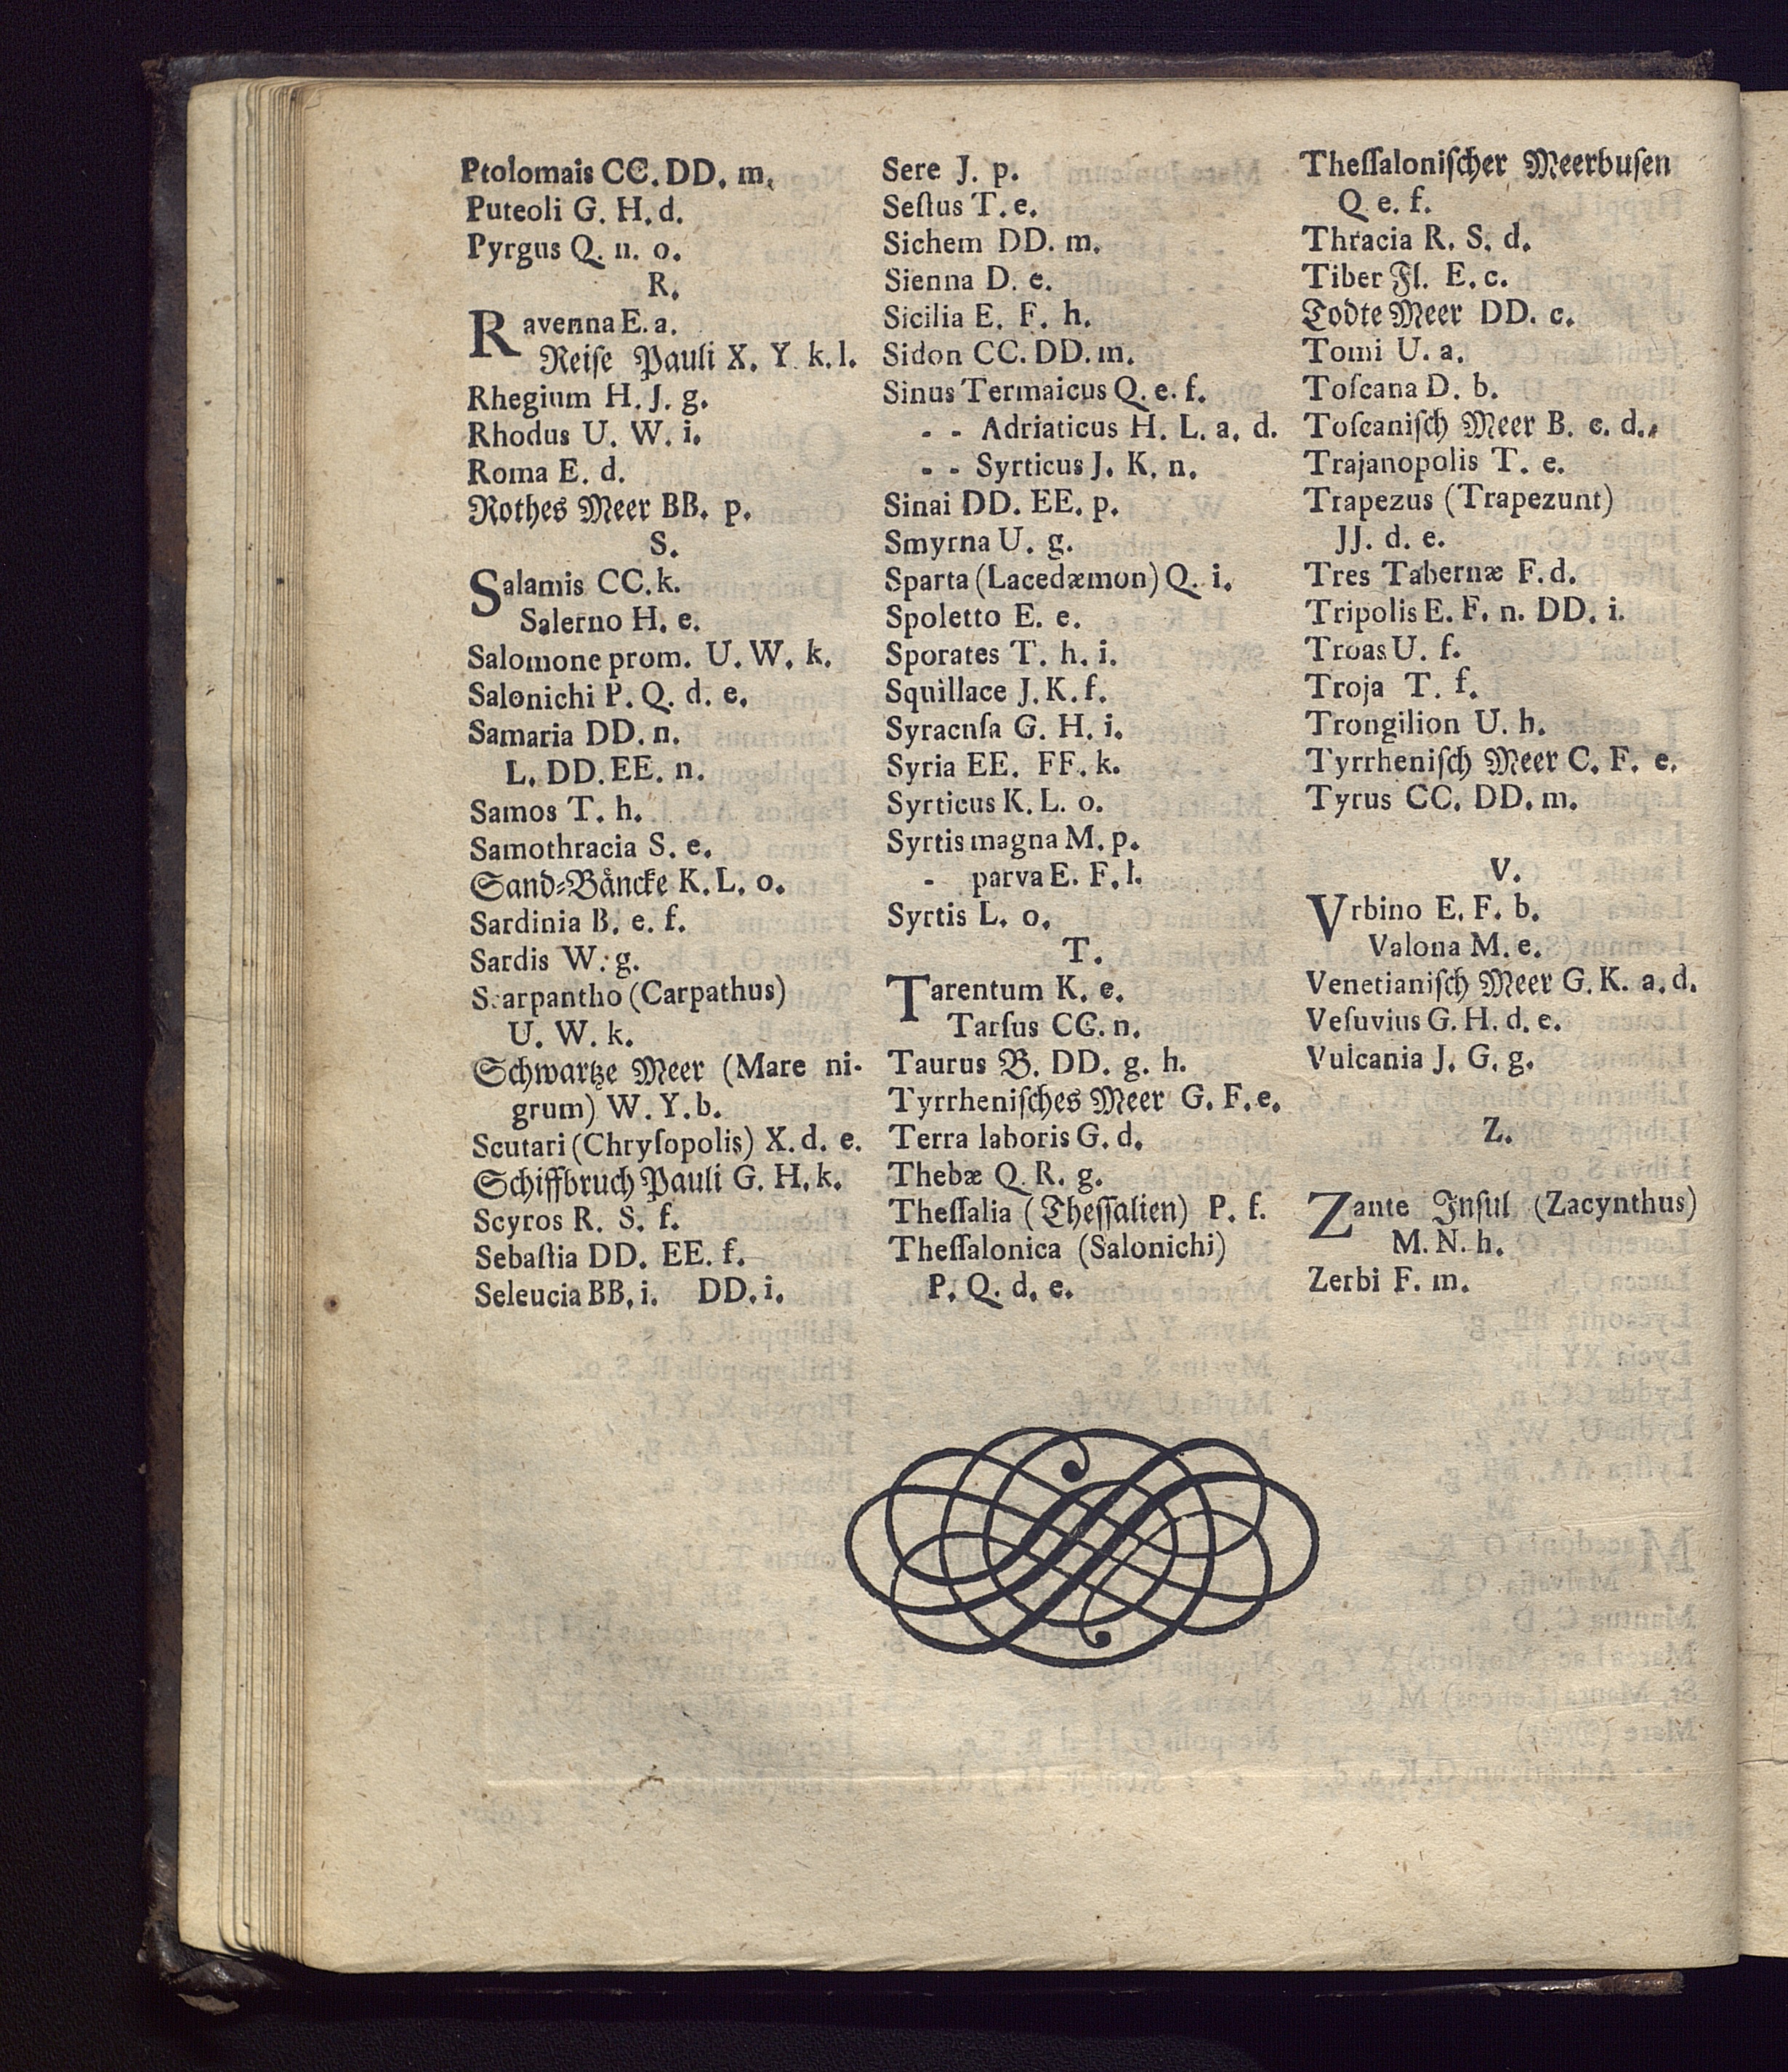 Ptolomais CC. DD. m.
Puteoli G. H. d.
Pyrgus Q. n. o.
R.
Ravenna E. a.
Reiſe Pauli X. Y. k. l.
Rhegium H. J. g.
Rhodus U. W. i.
Roma E. d.
Rothes Meer BB. p.
S.
Salamis CC. k.
Salerno H. e.
Salomone prom. U. W. k.
Salonichi P. Q. d. e.
Samaria DD. n.
L. DD. EE. n.
Samos T. h.
Samothracia S. e.
Sand⸗Baͤncke K. L. o.
Sardinia B. e. f.
Sardis W. g.
Scarpantho (Carpathus)
U. W. k.
Schwartze Meer (Mare ni-
grum) W. Y. b.
Scutari (Chryſopolis) X. d. e.
Schiffbruch Pauli G. H. k.
Scyros R. S. f.
Sebaſtia DD. EE. f.
Seleucia BB. i. DD. i.
Sere J. p.
Seſtus T. e.
Sichem DD. m.
Sienna D. e.
Sicilia E. F. h.
Sidon CC. DD. m.
Sinus Termaicus Q. e. f.
- - Adriaticus H. L. a. d.
- - Syrticus J. K. n.
Sinai DD. EE. p.
Smyrna U. g.
Sparta (Lacedæmon) Q. i.
Spoletto E. e.
Sporates T. h. i.
Squillace J. K. f.
Syracuſa G. H. i.
Syria EE. FF. k.
Syrticus K. L. o.
Syrtis magna M. p.
- parva E. F. l.
Syrtis L. o.
T.
Tarentum K. e.
Tarſus CC. n.
Taurus B. DD. g. h.
Tyrrheniſches Meer G. F. e.
Terra laboris G. d.
Thebæ Q. R. g.
Theſſalia (Theſſalien) P. f.
Theſſalonica (Salonichi)
P. Q. d. e.
Theſſaloniſcher Meerbuſen
Q. e. f.
Thracia R. S. d.
Tiber Fl. E. c.
Todte Meer DD. c.
Tomi U. a.
Toſcana D. b.
Toſcaniſch Meer B. e. d.
Trajanopolis T. e.
Trapezus (Trapezunt)
JJ. d. e.
Tres Tabernæ F. d.
Tripolis E. F. n. DD. i.
Troas U. f.
Troja T. f.
Trongilion U. h.
Tyrrheniſch Meer C. F. e.
Tyrus CC. DD. m.
V.
Vrbino E. F. b.
Valona M. e.
Venetianiſch Meer G. K. a. d.
Veſuvius G. H. d. e.
Vulcania J. G. g.
Z.
Zante Inſul (Zacynthus)
M. N. h.
Zerbi F. m.